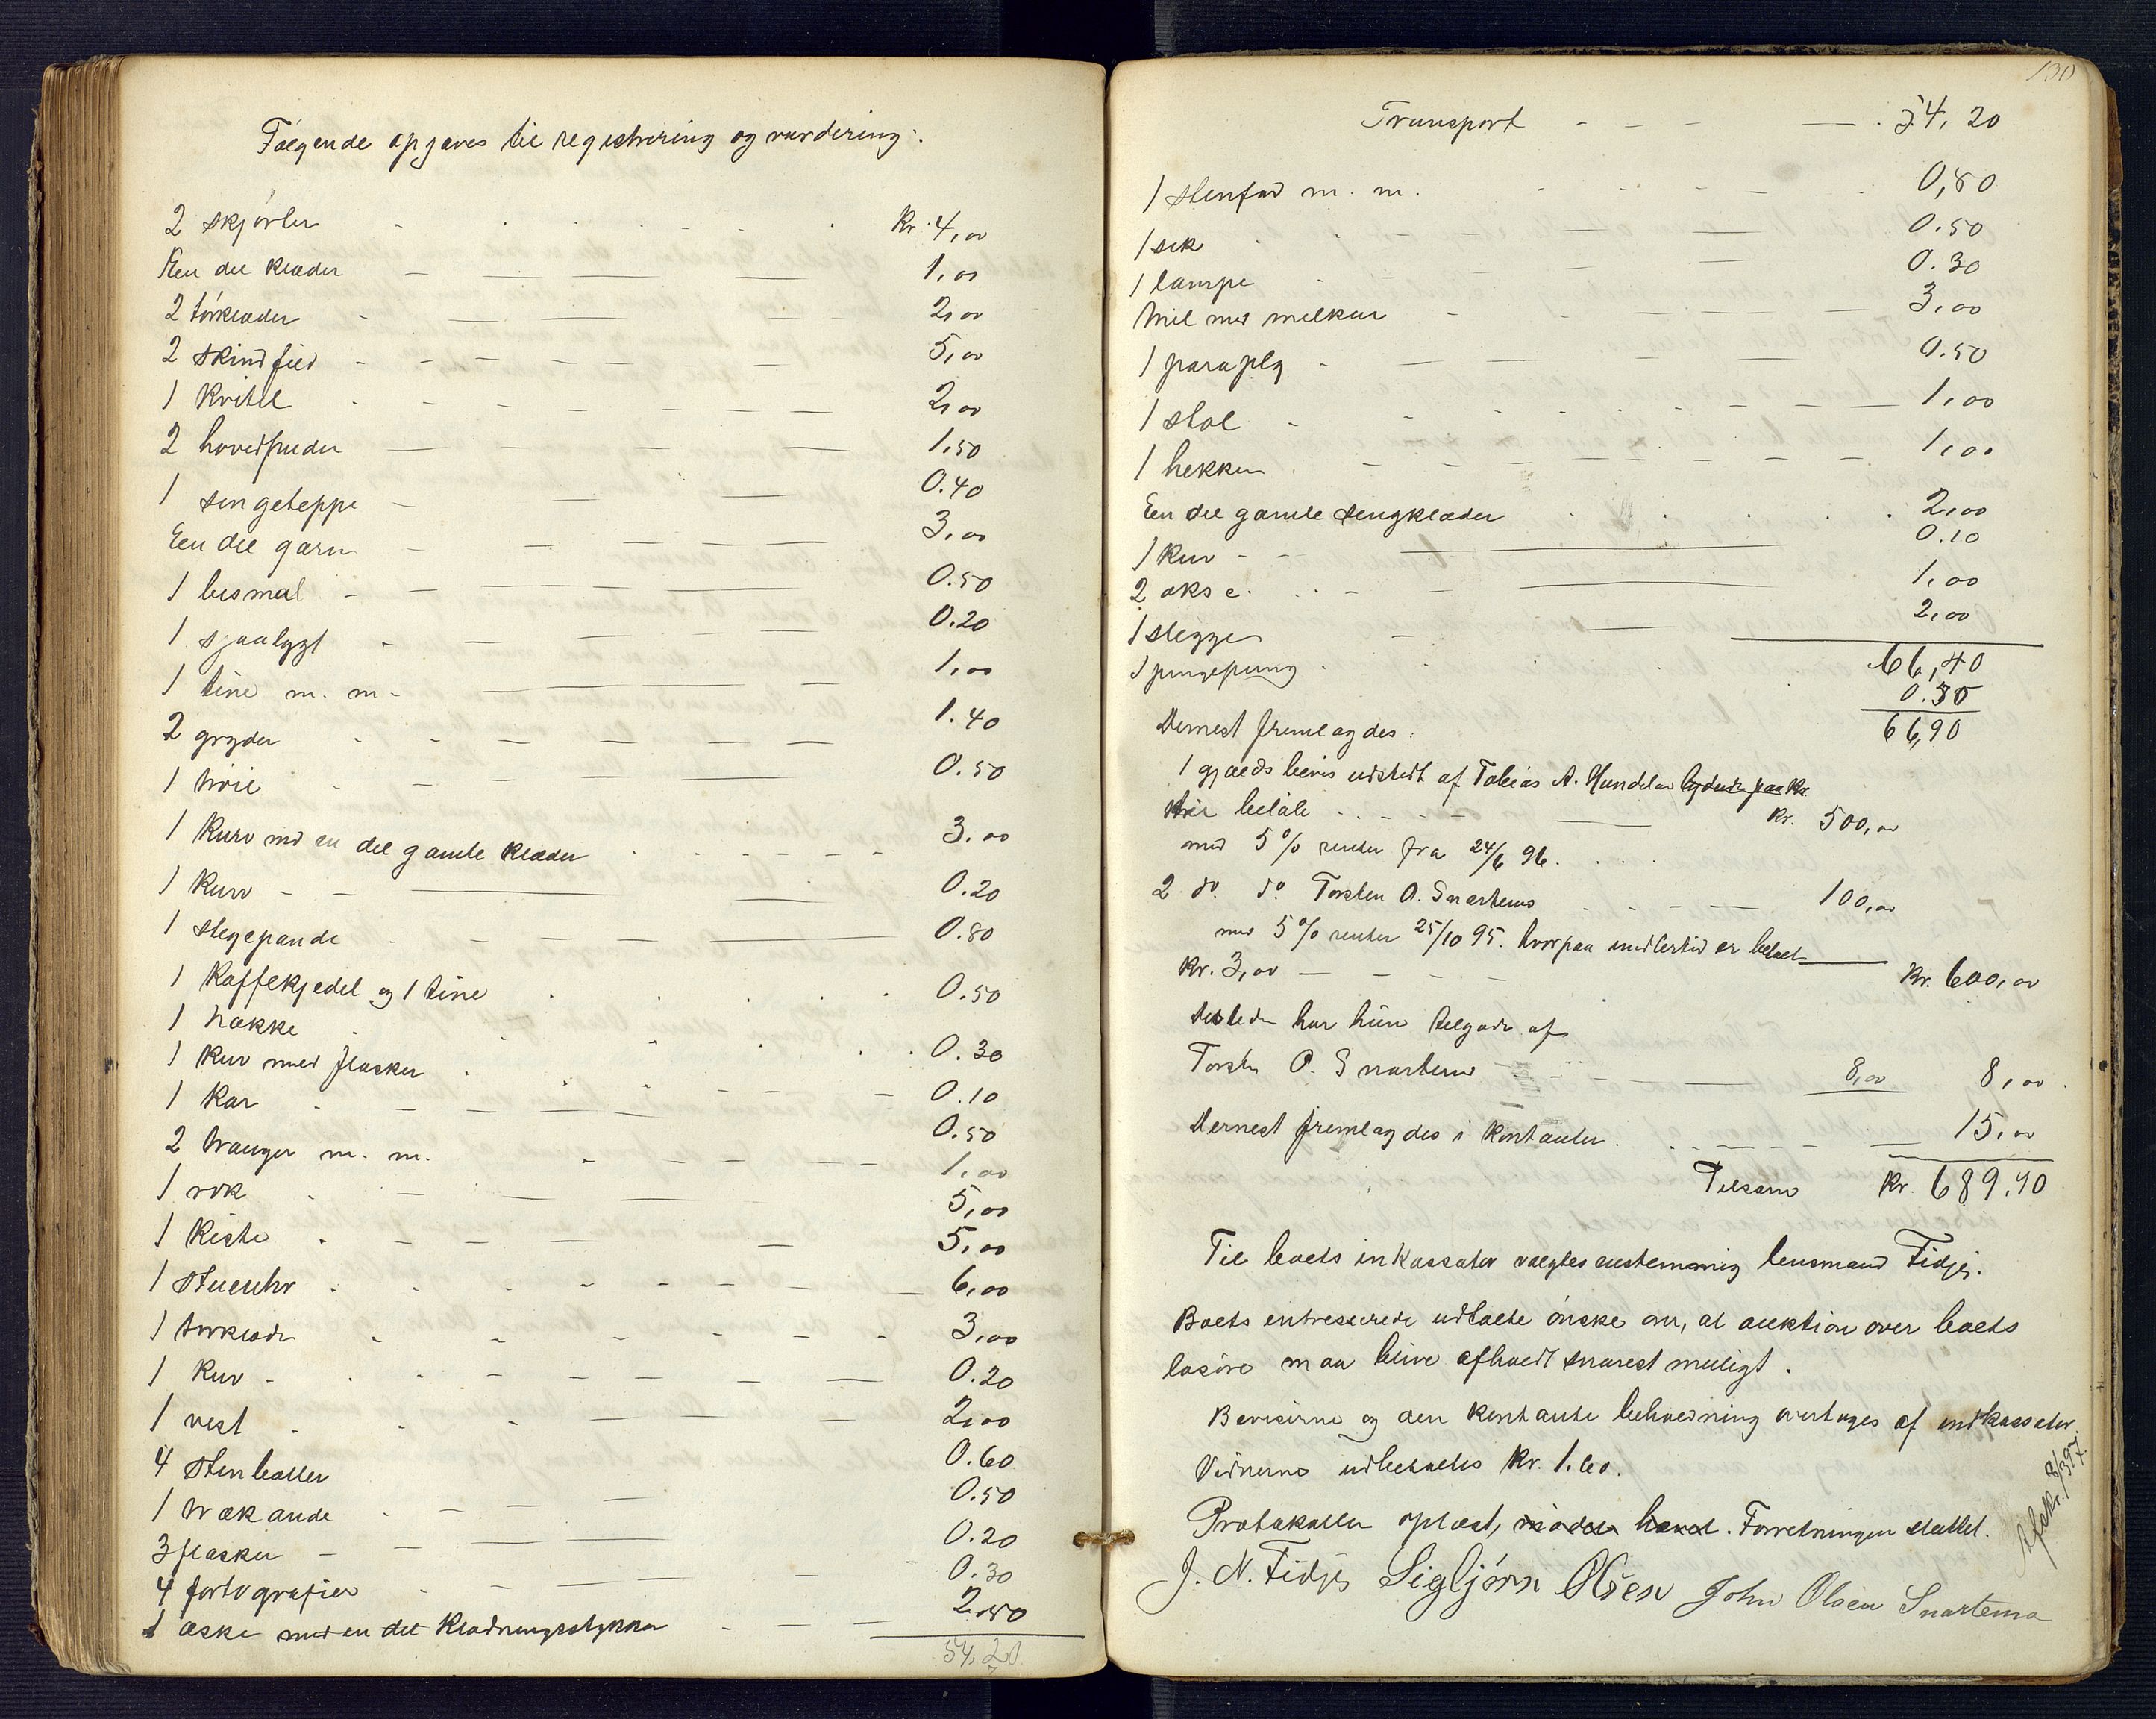 Følgende opgaves til registrering og vurdering:
2 skjørter Kr. 4,00
Een del klæder 1,00
2 tørklæder 2,00
2 skindfeld 5,00
1 kvitel 2,00
2 hovedpuder 1,50
1 sengeteppe 0.40
Een del garn 3,00
1 bismal 0.50
1 sjaalygt 0.20
1 tine m. m. 1,00
2 gryder 1.40
1 0.50
1 kurv md en del gamle klæder 3.00
1 kurv 0.20
1 stegepande 0.80
1 kaffekjedel og 1 tine 0.50
1 hakke
1 kurv med flasker 0.30
1 kar 0.10
2 m. m. 0.50
1 rok 1,00
1 kiste 5,00
1 stueuhr 5,00
1 tørklæde 6,00
1 kurv 3,00
1 vest 0.20
4 stenboller 2,00
1 0.60
3 flasker 0.50
4 fortografier 0.20
1 æske med en del klædningsstykker 0.30
2.50
54,20
130
Transport 54,20
1 stenfad m. m. 0,80
1 sek 0.50
1 lampe 0.30
Mel med melkar 3,00
1 paraply 0.50
1 stol 1,00
1 hekken 1,00
Een del gamle sengklæder 2,00
1 kurv 0.10
2 økse 1,00
1 slegge 2,00
66,40
1 pungepung 0.50
66,90
Dernest fremlagdes:
1 gjældsbevis udstedt af Tobias A. Hundelan lydende paa Kr.
betale Kr. 500,00
med 5 % renter fra 24/6 96.
2 do. do. Torsten O. Snartemo 100,00
med 5 % renter 25/10 95. hvorpaa imidlertid er betalt
Kr. 3,00 Kr. 600,00
desuden har hun tilgode af
Torsten O. Snartemo 8,00 8,00
Dernest fremlagdes i kontanter 15,00
Tilsam Kr. 689.90
Til boets inkassator valgtes enstemmig lensmand Fidje.
Boets entresserede udtalte ønske om, at auktion over boets
løsøre maa blive afholdt snarest muligt.
Beviserne og den kontante beholdning overtoges af indkassator.
Vidnerne udbetaltes Kr. 1.60.
Protokollen oplæst, mødet hævet. Forretningen sluttet.
J. N. Fidje Sigbjørn Olsen John Olsen Snartemo
Afskr. 8/3 97.